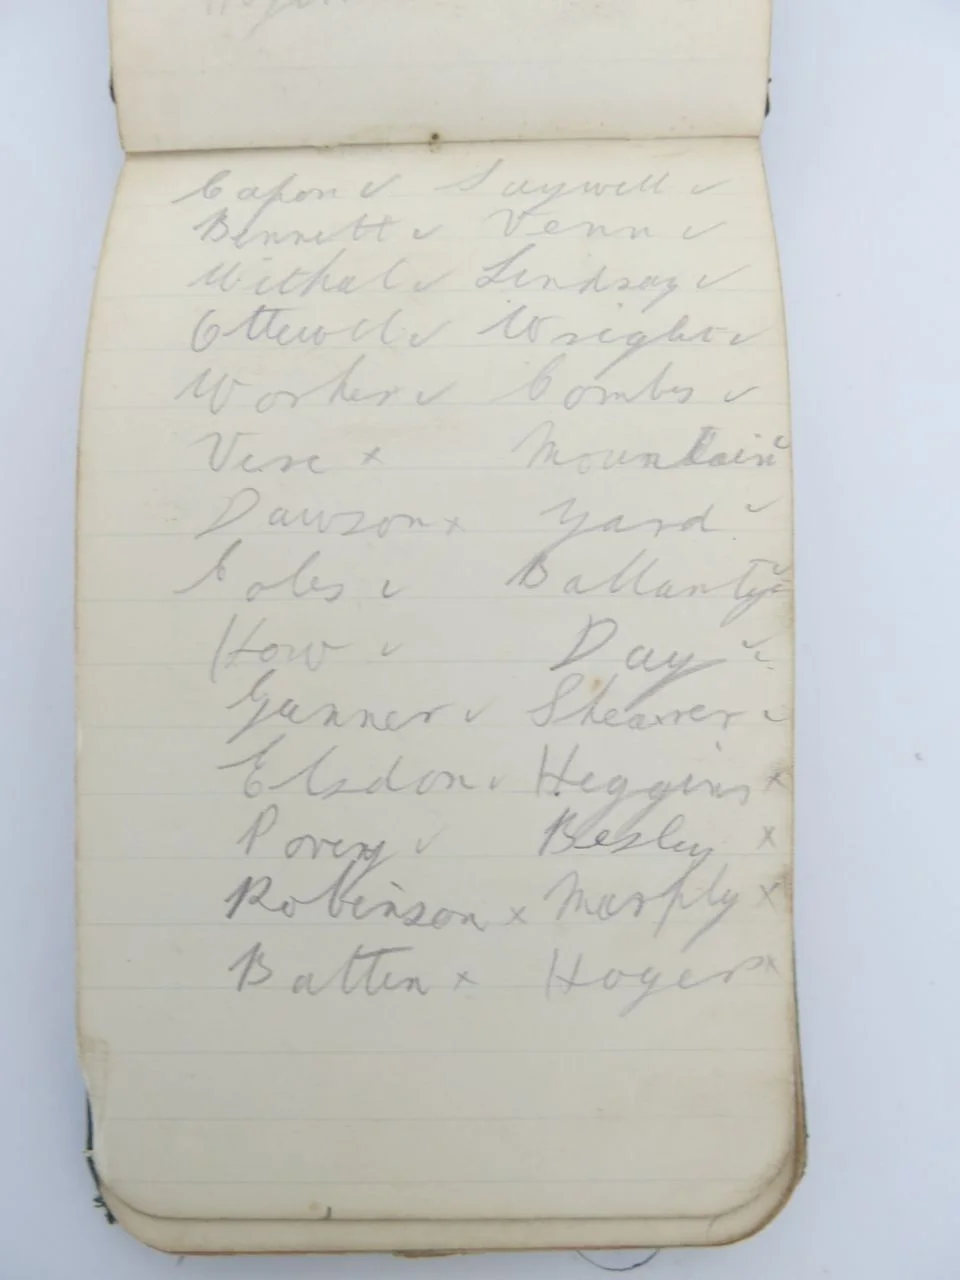 Capon ✓ Saywell ✓
Bennett ✓ Venn ✓
Withal ✓ Lindsay ✓
Ottewell ✓ Wright ✓
Worker ✓ Combes ✓
Vere × Mountain ✓
Dawson × Yard ✓
Coles ✓ Ballantyne ✓
How ✓ Day ✓
Gunner ✓ Shearer ✓
Elsdon ✓ Heggins ×
Povey ✓ Besley ×
Robinson × Marphy ×
Batten × Hoger ×